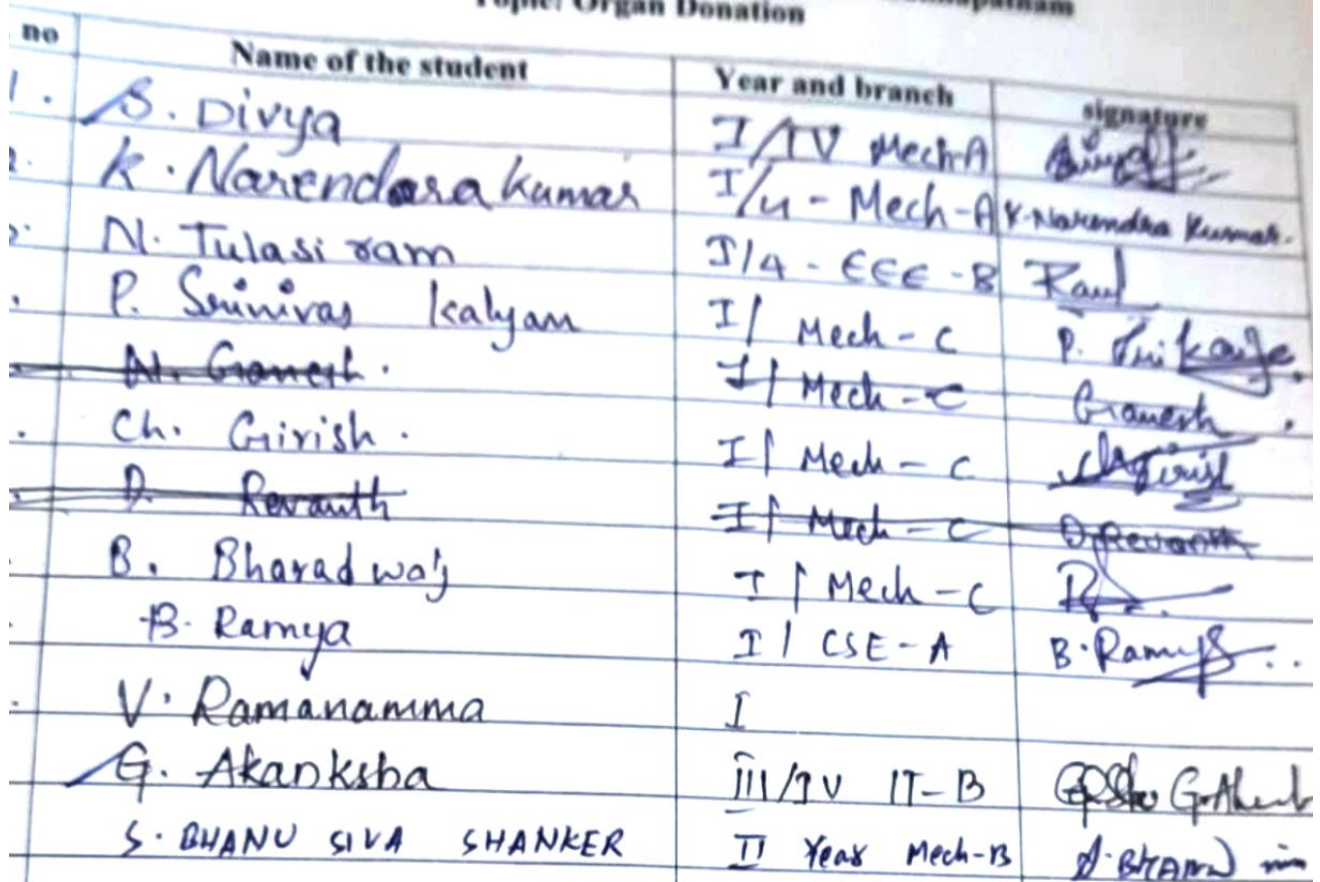 Topic: Organ Donation
no Name of the student Year and branch signature
1. S. Divya I/IV Mech-A
2. K. Narendara kumar I/4 - Mech-A K. Narendra Kumar.
N. Tulasi ram I/4 - EEE - B Ram
P. Srinivas kalyan I/ Mech - C P.
N. Ganesh. I/ Mech - C Ganesh.
Ch. Girish. I/ Mech - C Ch Girish
D. Revanth I/ Mech - C D. Revanth
B. Bharadwaj I/ Mech - C
B. Ramya I / CSE - A B. Ramya
V. Ramanamma I
G. Akanksha III/IV IT-B
S. BHANU SIVA SHANKER II Year Mech-B S. BHANU